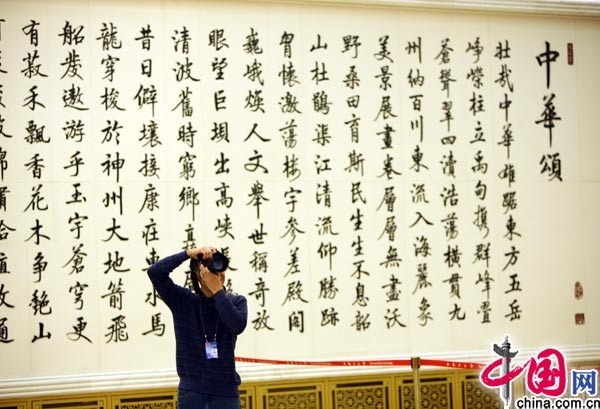 中華頌
壯哉中華雄踞東方五岳
崢嶸柱立禹甸攜群峰疊
蒼聳翠四瀆浩蕩橫貫九
州納百川東流入海麗象
美景展畫卷層層無盡沃
野桑田育斯民生生不息韶
山杜鵑渠江清流仰勝跡
胷懷激蕩樓宇參差殿閣
巍峨煥人文舉世稱奇放
眼望巨垻出高峽
清波舊時窮鄉
昔日僻壤接康莊車水馬
龍穿梭於神州大地箭飛
船發遨游乎玉宇蒼穹更
有菽禾飄香花木爭艷山
中国网
china.com.cn